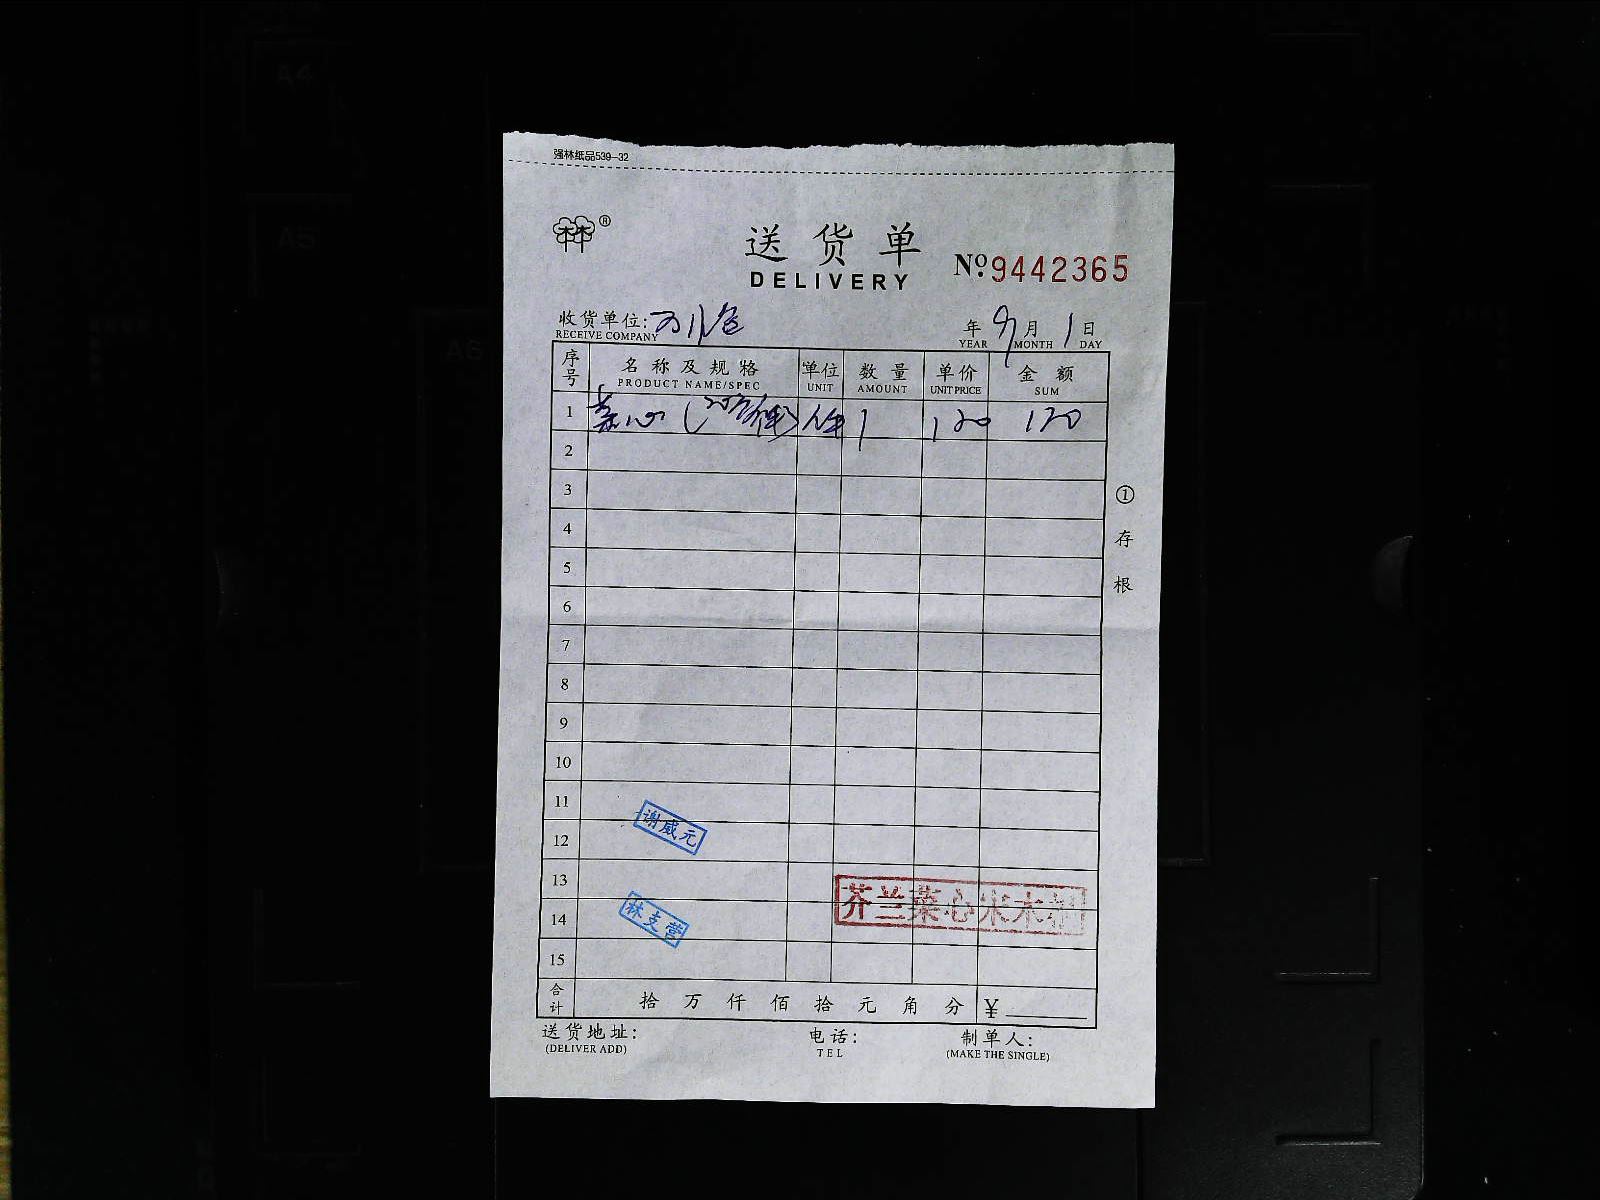 强林纸品539-32
林林®
送货单
DELIVERY
№:9442365
收货单位:
RECEIVE COMPANY
年 9月 1日
YEAR MONTH DAY
序号 名称及规格 单位 数量 单价 金额
PRODUCT NAME/SPEC UNIT AMOUNT UNIT PRICE SUM
1 菜心 (20 件 1 120 120
2
3
4
5
6
7
8
9
10
11
12
13
14
15
谢威元
林支营
芥兰菜心宋木
①存根
合计 拾万仟佰拾元角分 ¥
送货地址: 电话: 制单人:
(DELIVER ADD) TEL (MAKE THE SINGLE)